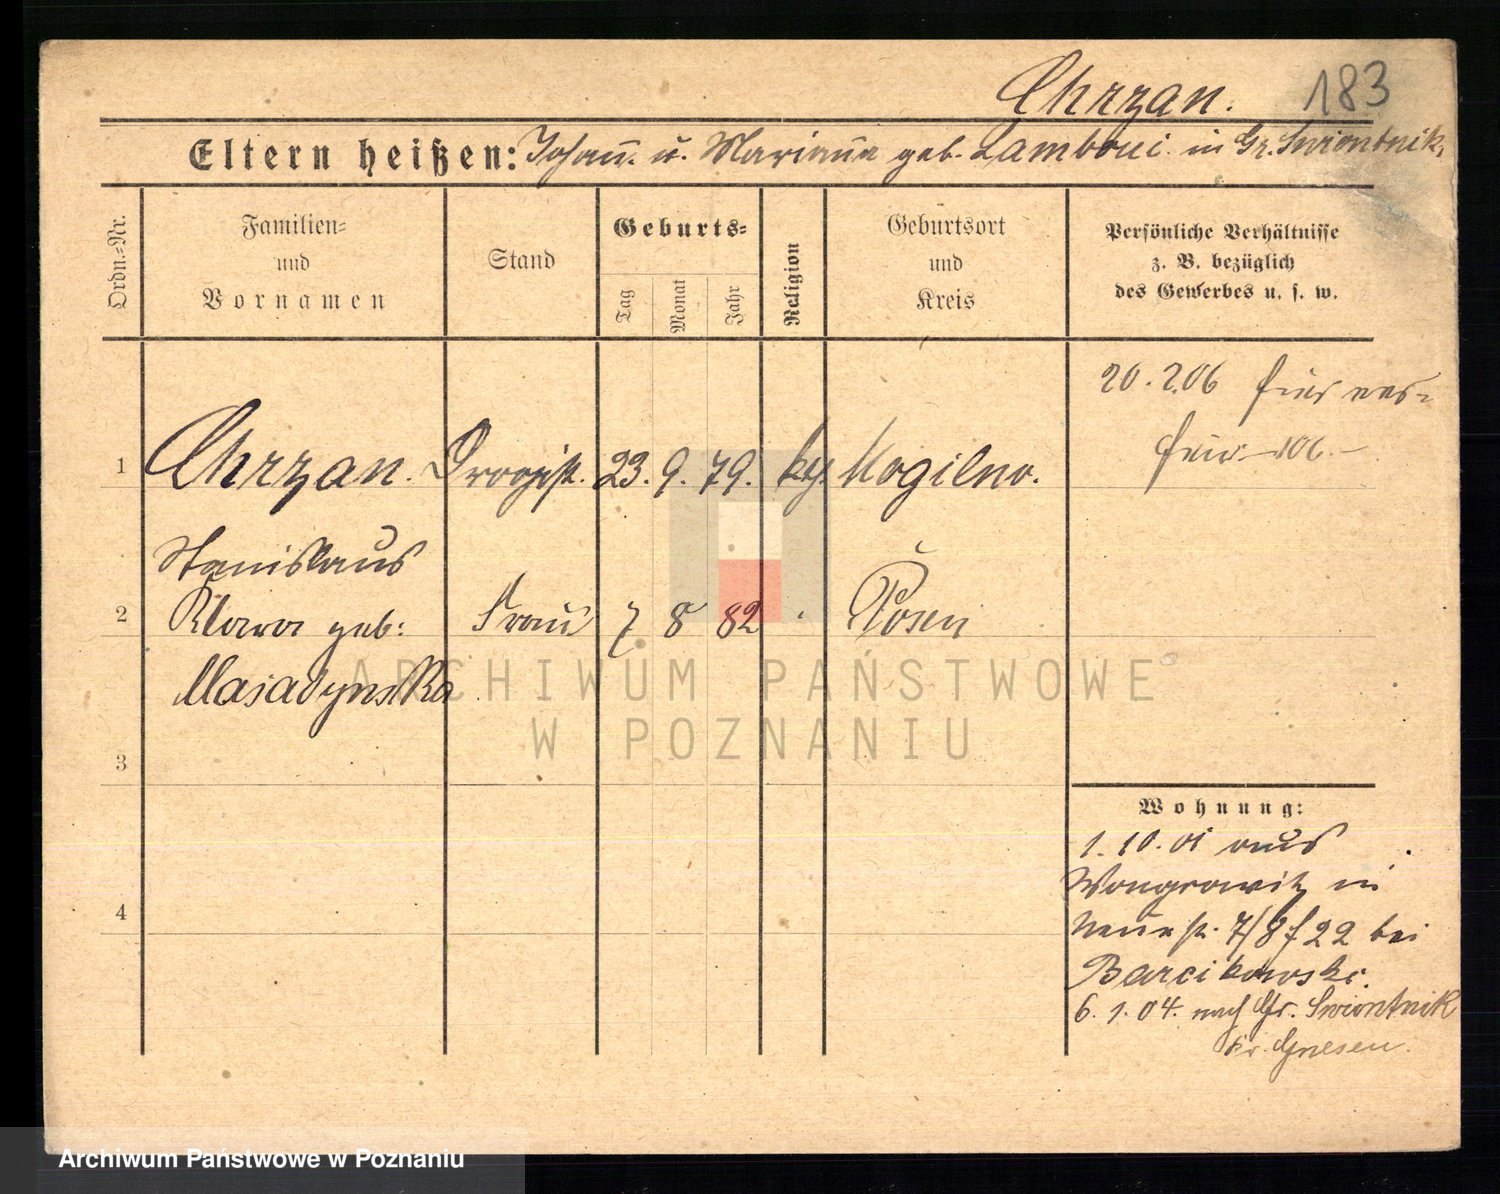 Chrzan. 183
Eltern heißen: Johann u. Marianna geb. Lamboui in Gr. Swiontnik.
Ordn.-Nr.
Familien-
und
Vornamen
Stand
Geburts-
Tag
Monat
Jahr
Religion
Geburtsort
und
Kreis
Persönliche Verhältnisse
z. B. bezüglich
des Gewerbes u. s. w.
20. 2. 06
106.-
1 Chrzan. Drogist. 23. 9. 79. kt. Mogilno.
Stanislaus
2 Klara geb: Frau 7 8 82 Posen
3
4
Wohnung:
1. 10. 01 aus
Wongrowitz in
Neuestr. 7/8 f 22 bei
Barcikowski.
6. 1. 04. nach Gr. Swiontnik
Kr. Gnesen.
ARCHIWUM PAŃSTWOWE
W POZNANIU
Archiwum Państwowe w Poznaniu